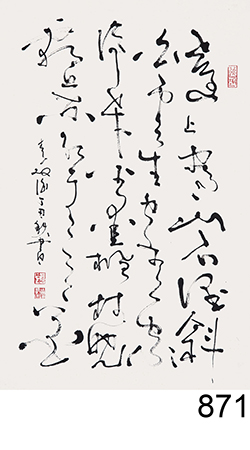 遠上寒山石徑斜
白雲生處有人家
停車坐愛楓林晚
霜葉紅於二月花
871